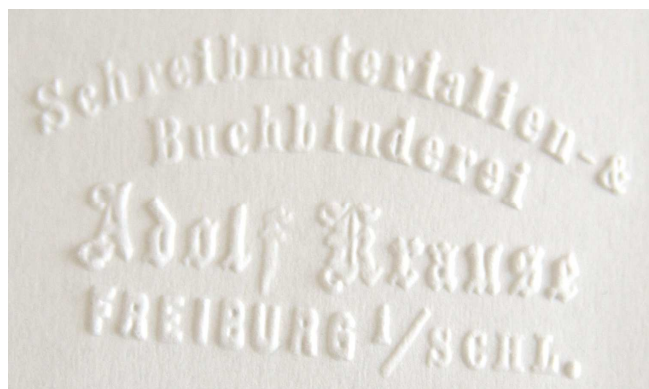 Schreibmaterialien-&
Buchbinderei
Adolf Krause
FREIBURG i/SCHL.